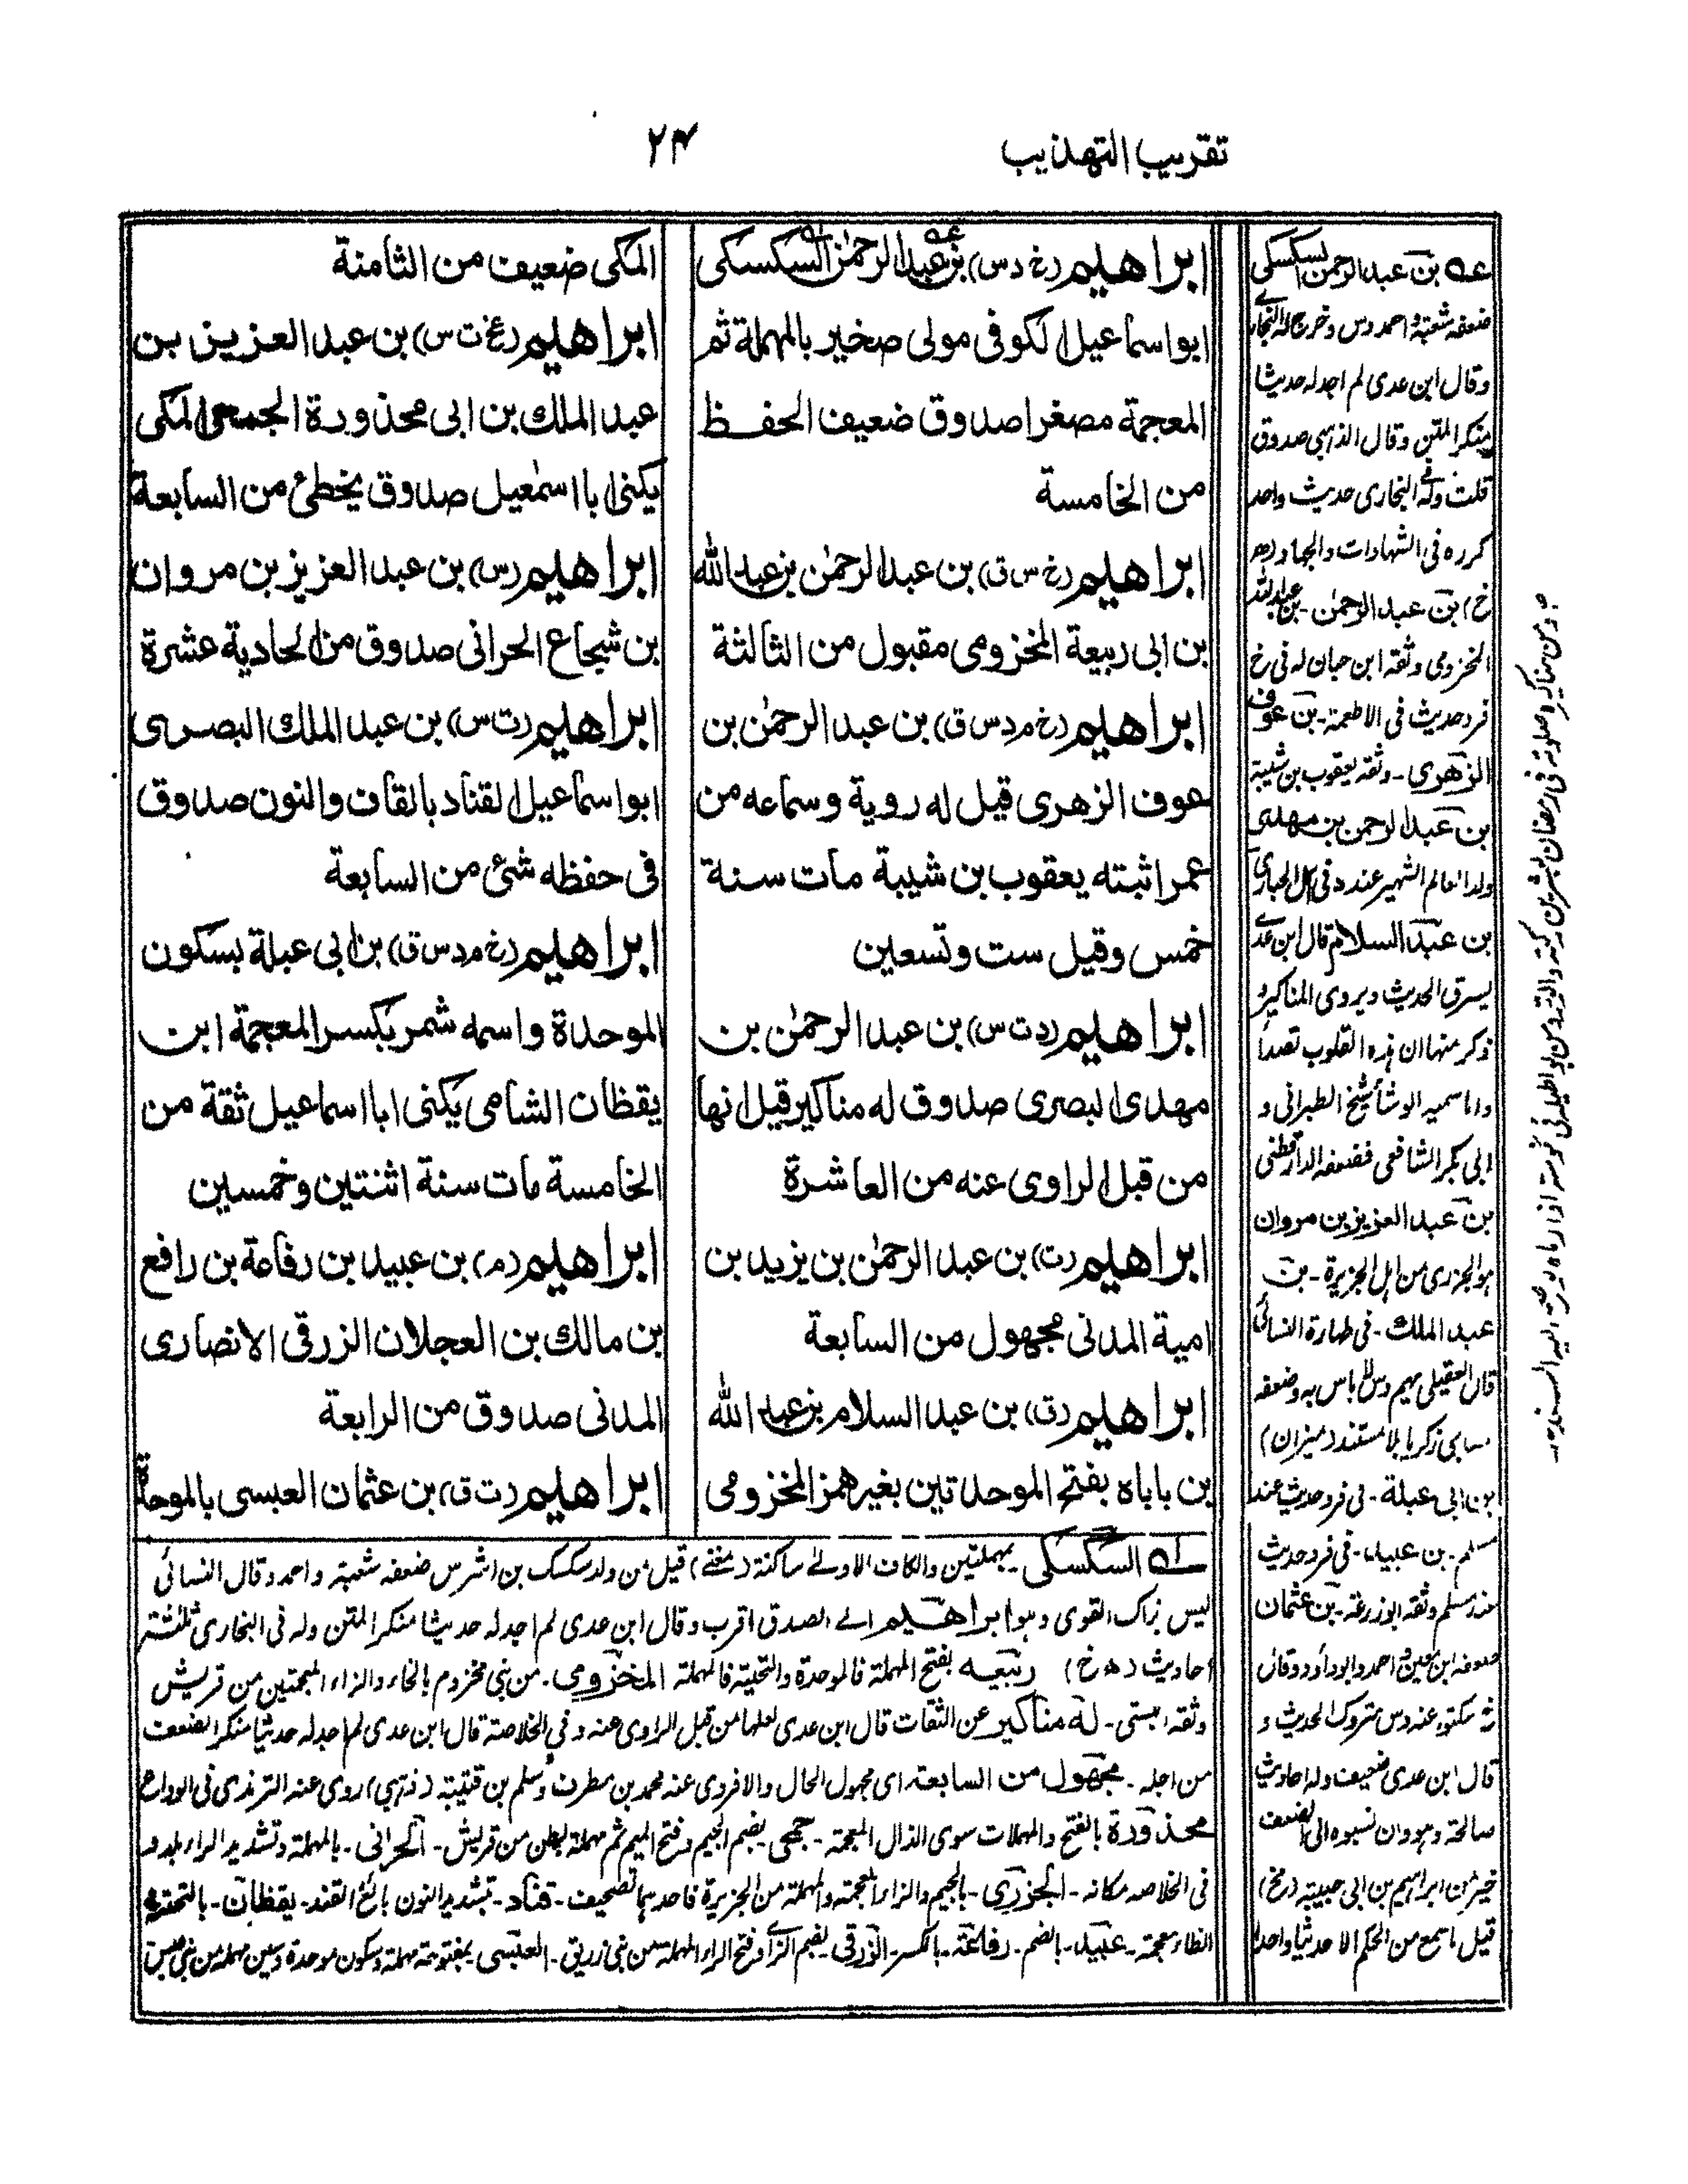 تقريب التهذيب
٢٤
ابراهيم (خ د س) بن عبد الرحمٰن السكسكى
ابو اسماعيل الكوفى مولى صخير بالمهملة ثم
المعجمة مصغرا صدوق ضعيف الحفظ
من الخامسة
ابراهيم (خ س ق) بن عبد الرحمٰن بن عبد الله
بن ابى ربيعة المخزومى مقبول من الثالثة
ابراهيم (خ م د س ق) بن عبد الرحمٰن بن
عوف الزهرى قيل له روية وسماعه من
عمر اثبته يعقوب بن شيبة مات سنة
خمس وقيل ست وتسعين
ابراهيم (د ت س) بن عبد الرحمٰن بن
مهدى البصرى صدوق له مناكير قيل انها
من قبل الراوى عنه من العاشرة
ابراهيم (ت) بن عبد الرحمٰن بن يزيد بن
امية المدنى مجهول من السابعة
ابراهيم (ق) بن عبد السلام بن عبد الله
بن باباه بفتح الموحدتين بغير همز المخزومى
المكى ضعيف من الثامنة
ابراهيم (عخ ت س) بن عبد العزيز بن
عبد الملك بن ابى محذورة الجمحى المكى
يكنى ابا اسمٰعيل صدوق يخطئ من السابعة
ابراهيم (س) بن عبد العزيز بن مروان
بن شجاع الحرانى صدوق من الحادية عشرة
ابراهيم (ت س) بن عبد الملك البصرى
ابو اسماعيل القناد بالقاف والنون صدوق
فى حفظه شئ من السابعة
ابراهيم (خ م د س ق) بن ابى عبلة بسكون
الموحدة واسمه شمر بكسر المعجمة ابن
يقظان الشامى يكنى ابا اسماعيل ثقة من
الخامسة مات سنة اثنتين وخمسين
ابراهيم (م) بن عبيد بن رفاعة بن رافع
بن مالك بن العجلان الزرقى الانصارى
المدنى صدوق من الرابعة
ابراهيم (ت ق) بن عثمان العبسى بالموحدة
عه بن عبد الرحمن السكسكى
ضعفه شعبة واحمد وس وخرج له البخارى
وقال ابن عدى لم اجد له حديثا
منكر المتن وقال الذهبى صدوق
قلت وله فى البخارى حديث واحد
كرره فى الشهادات والجهاد
خ) بن عبد الرحمٰن - بن عبد الله
المخزومى وثقه ابن حبان له فى خ
فرد حديث فى الاطعمة - بن عوف
الزهرى - وثقه يعقوب بن شيبة
بن عبد الرحمن بن مهدى
ولد العالم الشهير عند د فى اكل الحبارى
بن عبد السلام قال ابن عدى
يسرق الحديث ويروى المناكير و
ذكر منها ان هذه القلوب تصدأ
واما سميه الوشاء شيخ الطبرانى و
ابى بكر الشافعى فضعفه الدارقطنى
بن عبد العزيز بن مروان
هو الجزرى من اهل الجزيرة - بن
عبد الملك - فى طهارة النسائى
قال العقيلى يهم وس لا باس به وضعفه
زكريا بلا مستند (ميزان)
بن ابى عبلة - فى فرد حديث عند
مسلم - بن عبيد - فى فرد حديث
عند مسلم وثقه ابو زرعة - بن عثمان
ضعفه ابن معين واحمد وابو داود وقال
خ سكتوا عنه وس متروك الحديث و
قال ابن عدى ضعيف وله احاديث
صالحة وهو وان نسبوه الى الضعف
خير من ابراهيم بن ابى حيية
قيل ما سمع من الحكم الا حديثا واحدا
له السكسكى - بمهملتين والكاف الاولى ساكنة (مغنى) قيل من ولد سكسك بن اشرس ضعفه شعبة واحمد وقال النسائى
ليس بذاك القوى وهو ابراهيم الى الصدق اقرب وقال ابن عدى لم اجد له حديثا منكر المتن وله فى البخارى ثلثة
احاديث ربيعه بفتح المهملة فالموحدة والتحتية فالمهملة المخزومى - من بنى مخزوم بالخاء والزاء المعجمتين من قريش
وثقه البستى - له مناكير عن الثقات قال ابن عدى لعلها من قبل الراوى عنه وفى الخلاصة قال ابن عدى لم اجد له حديثا منكرا الضعف
من اجله - مجهول من السابعة اى مجهول الحال والا فروى عنه محمد بن مطرف وسلم بن قتيبة (ذهبى) روى عنه الترمذى فى الوداع
محذورة بالفتح والمهملات سوى الذال المعجمة - جمحى - بضم الجيم وفتح الميم ثم مهملة بطن من قريش - الحرانى - بالمهملة وتشديد الراء بلد و
فى الخلاصه مكانه - الجزرى - بالجيم والزاء المعجمة والمهملة من الجزيرة فاحدهما تصحيف - قناد - بتشديد النون بائع القند - يقظان - بالتحتية و
الظاء معجمة - عبيد - بالضم - رفاعة - بالكسر - الزرقى - بضم الزاء وفتح الراء المهملة من بنى زريق - العبسى - بمفتوحة مهملة وسكون موحدة وسين مهملة من بنى عبس